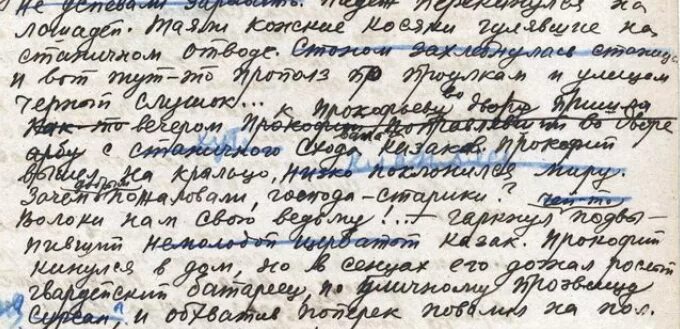 не успевали зарывать. Падеж перекинулся на
лошадей. Таяли конские косяки гулявшие на
станичном отводе. Стоном захлебнулась станица
и вот тут-то прополз по проулкам и улицам
черный слушок... к Прокофьеву во двору пришла
Как-то вечером Прокофий во дворе
арбу с станичного схода казаки. Прокофий
вышел на крыльцо, низко поклонился миру.
Зачем добрым пожаловали, господа-старики?
Волоки нам свою ведьму!.. — гаркнул подвы-
пивший немолодой щербатый казак. Прокофий
кинулся в дом, но в сенцах его догнал рослый
гвардейский батареец, по уличному прозвищу
и обхватив поперек повалил на пол.